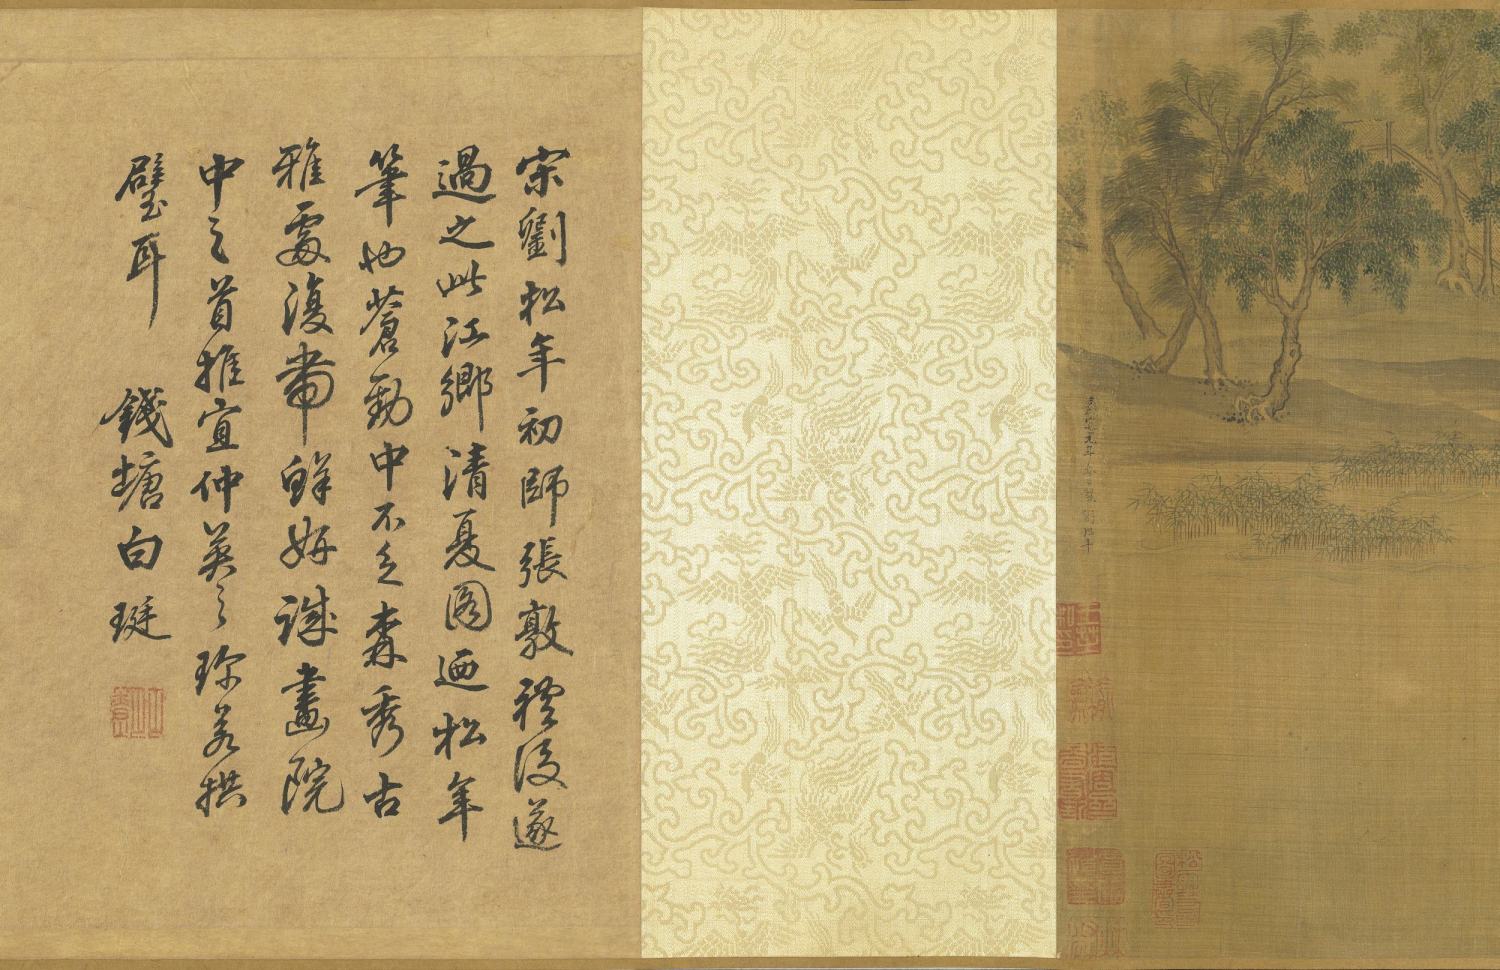 宋劉松年初師張敦禮後遂
過之此江鄉清夏圖迺松年
筆也蒼勁中不乏森秀古
雅處復帶鮮妍誠畫院
中之首推宜仲英之珍若拱
璧耳 錢塘白珽
嘉定元年春日 劉松年